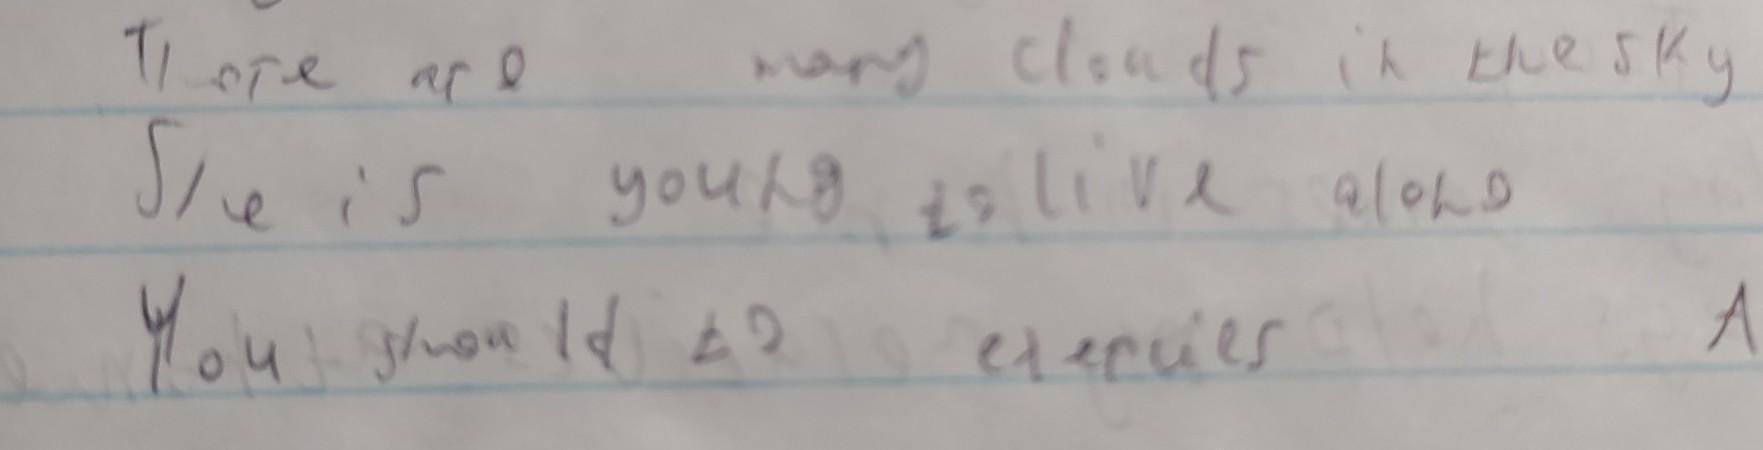 There are many clouds in the sky
She is young to live alone
You should to exercies A